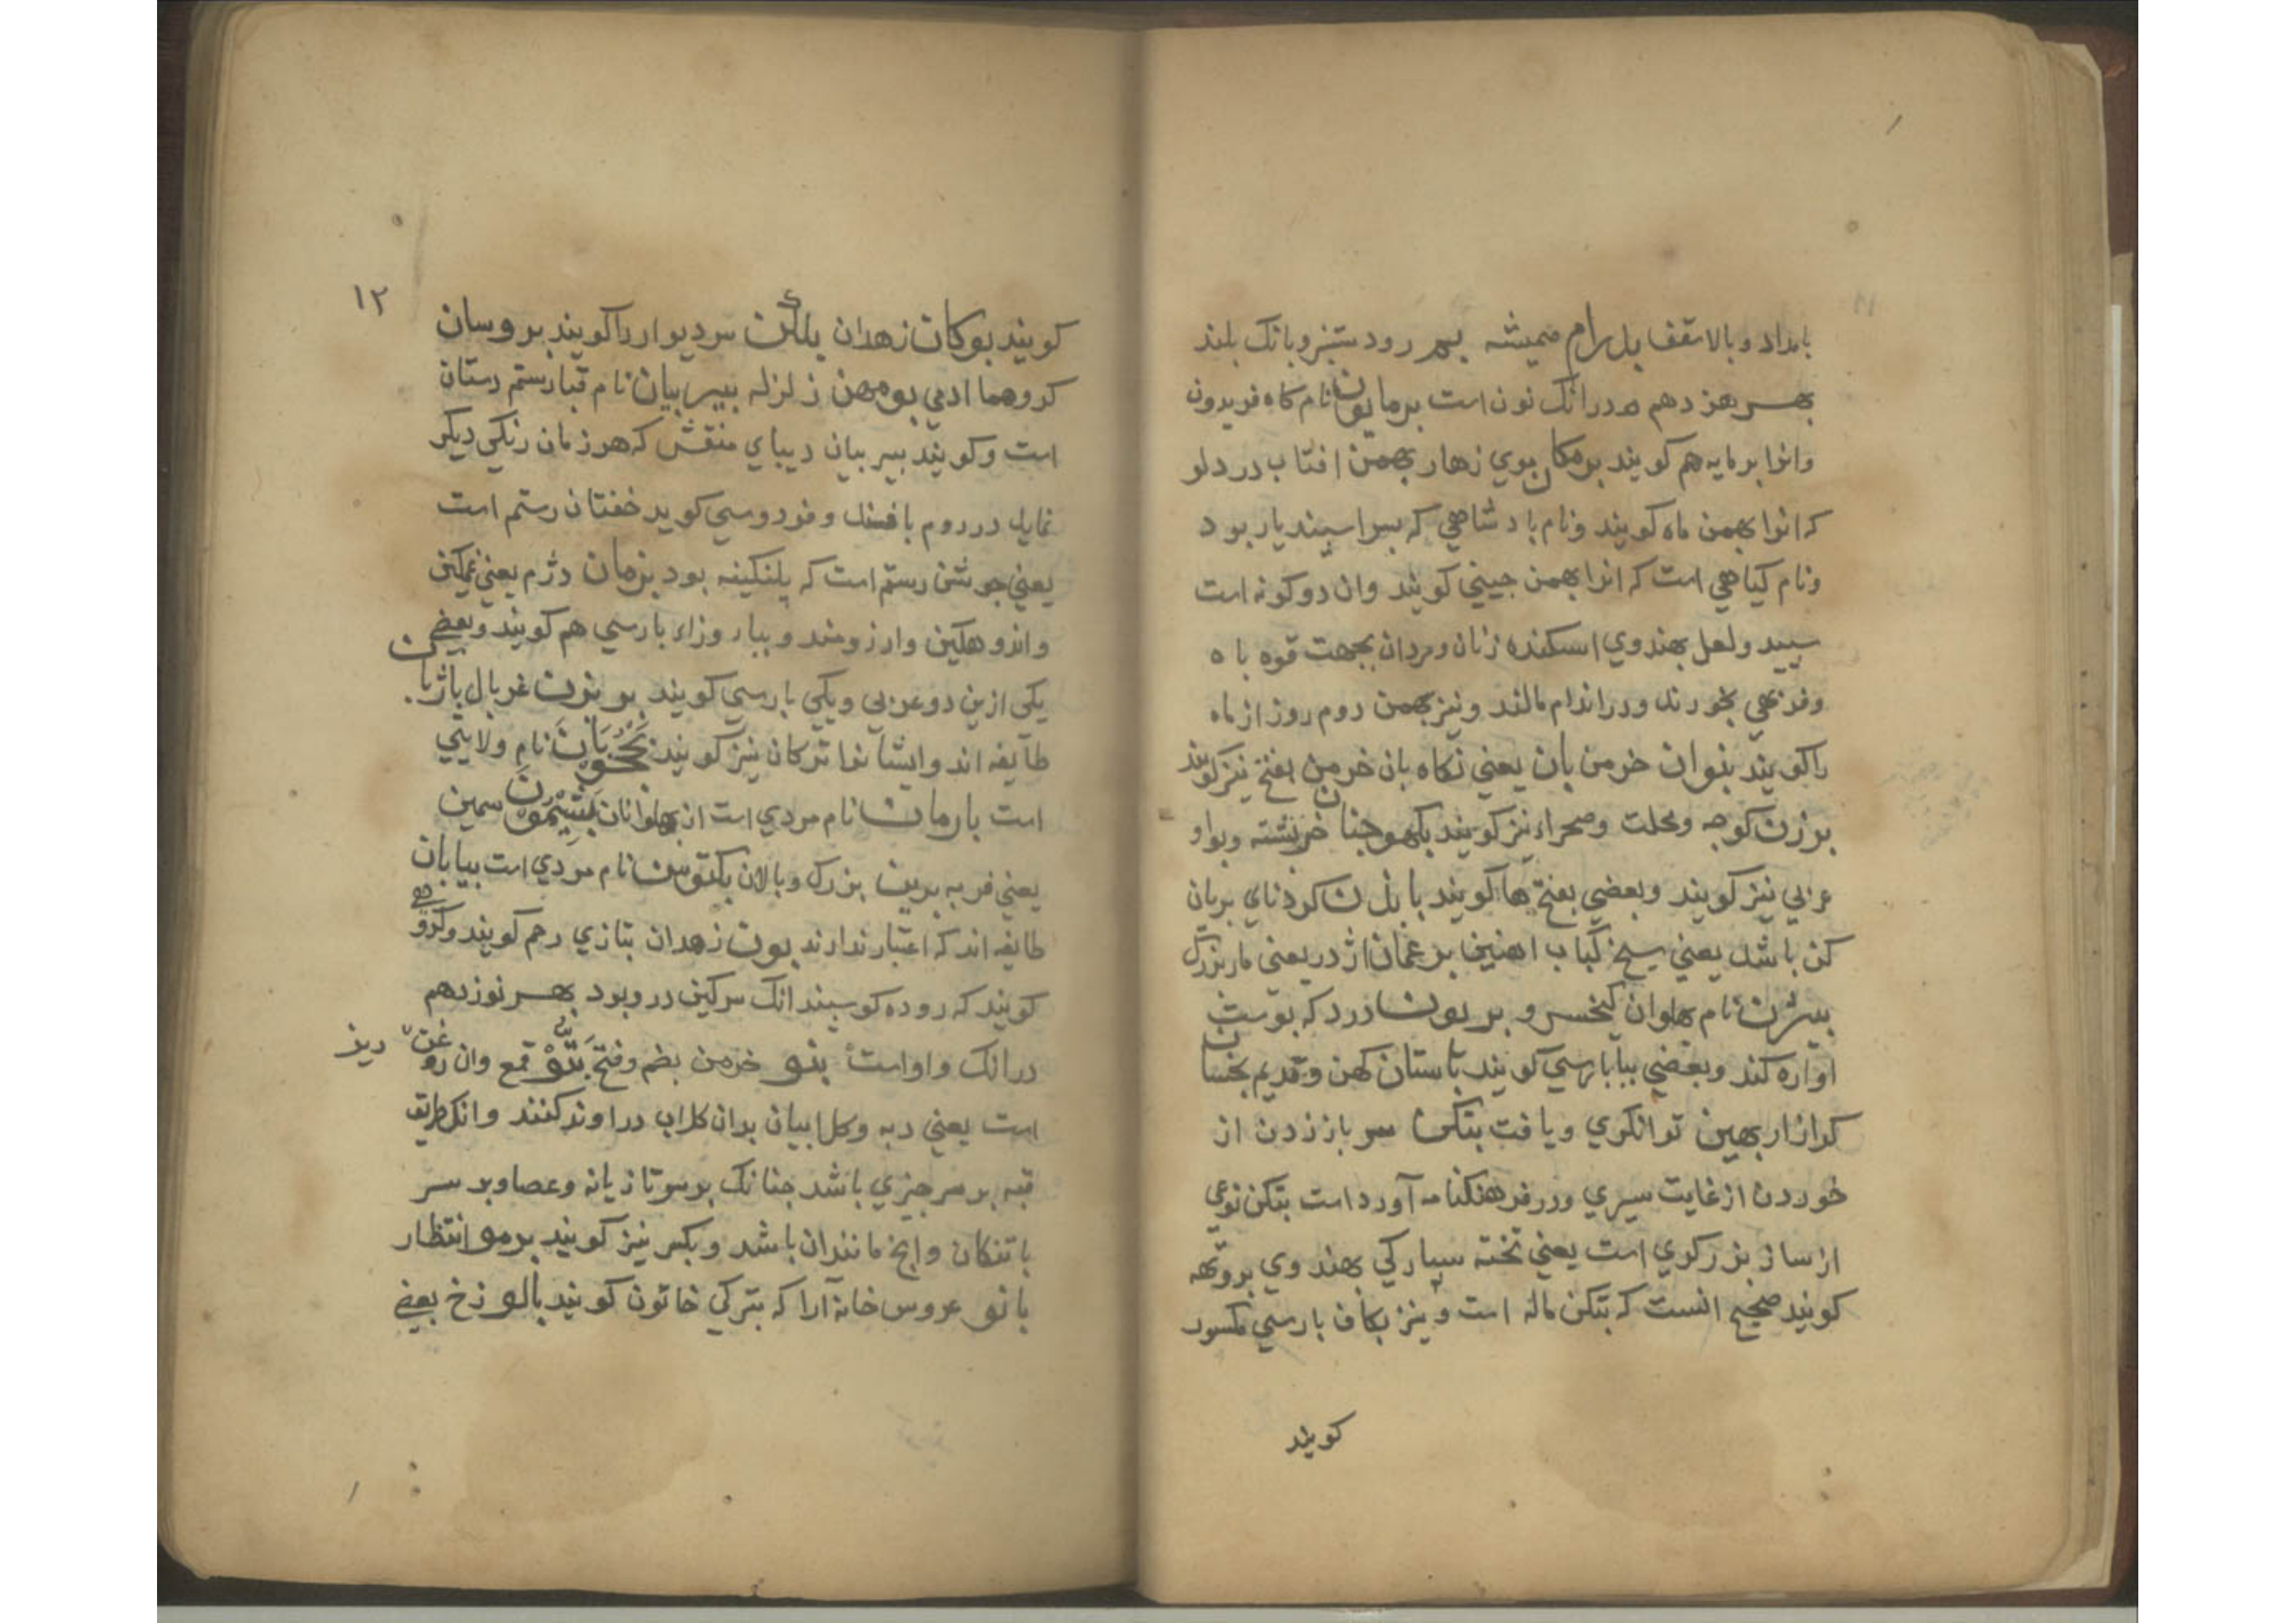 بامداد و بالا سقف بدرام همیشه بهر رود ستیز و بانک بلند
بهر هزدهم در انک نون است برمایون نام کاه فریدون
وانرا برمایه هم کویند برمکان بوی زهار بهمن افتاب در دلو
که انرا بهمن ماه کویند و نام بادشاهی که بسر اسبندیار بود
و نام کیاهی است که انرا بهمن جینی کویند وان دو کونه است
سبید و لعل بهندوی اسکنده زنان و مردان بجهت قوه باه
و فربهی بخورند و در اندام مالند و نیز بهمن دوم روز از ماه
را کویند بنوان خرمن بان یعنی نکاه بان خرمن بفتح نیز کویند
برزن کوجه و محلت و صحراء نیز کویند خربشته و بواو
عربی نیز کویند و بعضی بفتح ها کویند بابزن کردنای بریان
کن باشد یعنی سیخ کباب اهنین برغمان اژدر یعنی مار بزرک
بیژن نام بهلوان کیخسرو بریون درد که بوست
اواره کند و بعضی ببا بارسی کویند باستان کهن و قدیم بخسان
کدازان بهین توانکری و یافت بتکن سر باز زدن از
خوردن از غایت سیری و در فرهنکنامه آورد است بتکن نوعی
از ساز بزرکری است یعنی تخته سبارکی بهندوی
کویند صحیح انست که بتکن ماله است و نیز بکاف بارسی مکسور
کویند
۱۲
کویند بوکان زهدان بلکن سر دیوار را کویند بروسان
کروهها ادمی بومهن زلزله ببر بیان نام قباء رستم دستان
است و کویند ببر بیان دیبای منقش که هر زمان رنکی دیکر
نماید در روم بافند و فردوسی کوید خفتان رستم است
یعنی جوشن رستم است که بلنکینه بود بژمان دژم یعنی غمکین
و اندوهکین و ارزومند و ببا و زاء بارسی هم کویند و بعضی
یکی ازین دو عربی و یکی بارسی کویند برویزن غربال باژنان
طایفه اند و ایشانرا ترکان نیز کویند نام ولایتی
است بارمان نام مردی است از بهلوانان سمین
یعنی فربه برین بزرک و بالان بکتوسن نام مردی است بیابان
طایفه اند که اعتبار ندارند بون زهدان بتازی رحم کویند و کروهی
کویند که روده کوسبند انک سرکین در و بود بهر نوزدهم
در انک واو است بنو خرمن بضم و فتح بتو قمع وان روغن ریز
است یعنی دبه و کلابیان بدان کلاب در اوند کنند و انک طریق
قبه بر سر جیزی باشد جنانک بر سر تازیانه و عصا و بر سر
باتنکان و انج مانند ان باشد و بکسر نیز کویند برمو انتظار
بانو عروس خانه آرا که بترکی خاتون کویند بالو زخ بعضی